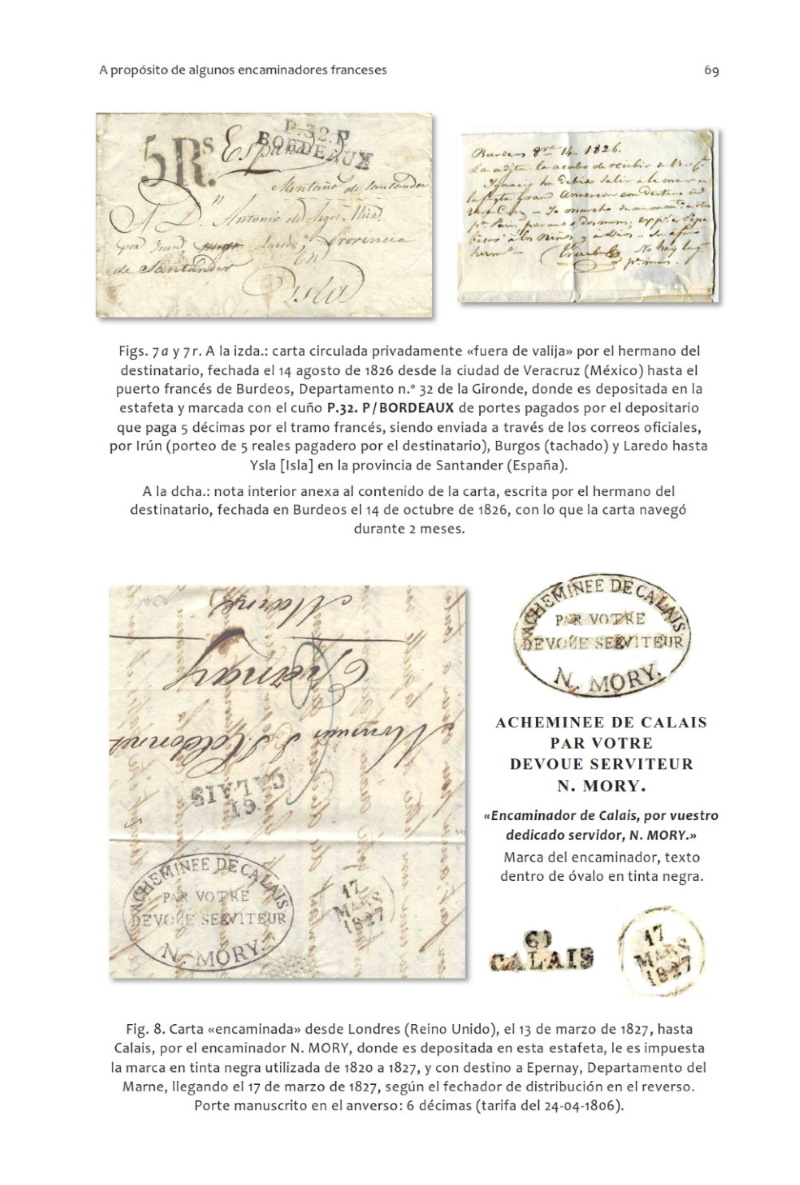 A propósito de algunos encaminadores franceses
69
5 Rs
España
P.32.P
BORDEAUX
Montaña de Santander
Provincia
de Santander
en
Isla
Burdeos 14 1826.
Figs. 7a y 7r. A la izda.: carta circulada privadamente «fuera de valija» por el hermano del
destinatario, fechada el 14 agosto de 1826 desde la ciudad de Veracruz (México) hasta el
puerto francés de Burdeos, Departamento n.º 32 de la Gironde, donde es depositada en la
estafeta y marcada con el cuño P.32. P/BORDEAUX de portes pagados por el depositario
que paga 5 décimas por el tramo francés, siendo enviada a través de los correos oficiales,
por Irún (porteo de 5 reales pagadero por el destinatario), Burgos (tachado) y Laredo hasta
Ysla [Isla] en la provincia de Santander (España).
A la dcha.: nota interior anexa al contenido de la carta, escrita por el hermano del
destinatario, fechada en Burdeos el 14 de octubre de 1826, con lo que la carta navegó
durante 2 meses.
Marne
Epernay
61
CALAIS
ACHEMINEE DE CALAIS
PAR VOTRE
DEVOUE SERVITEUR
N. MORY.
17
MARS
1827
ACHEMINEE DE CALAIS
PAR VOTRE
DEVOUE SERVITEUR
N. MORY.
ACHEMINEE DE CALAIS
PAR VOTRE
DEVOUE SERVITEUR
N. MORY.
«Encaminador de Calais, por vuestro
dedicado servidor, N. MORY.»
Marca del encaminador, texto
dentro de óvalo en tinta negra.
61
CALAIS
17
MARS
1827
Fig. 8. Carta «encaminada» desde Londres (Reino Unido), el 13 de marzo de 1827, hasta
Calais, por el encaminador N. MORY, donde es depositada en esta estafeta, le es impuesta
la marca en tinta negra utilizada de 1820 a 1827, y con destino a Epernay, Departamento del
Marne, llegando el 17 de marzo de 1827, según el fechador de distribución en el reverso.
Porte manuscrito en el anverso: 6 décimas (tarifa del 24-04-1806).